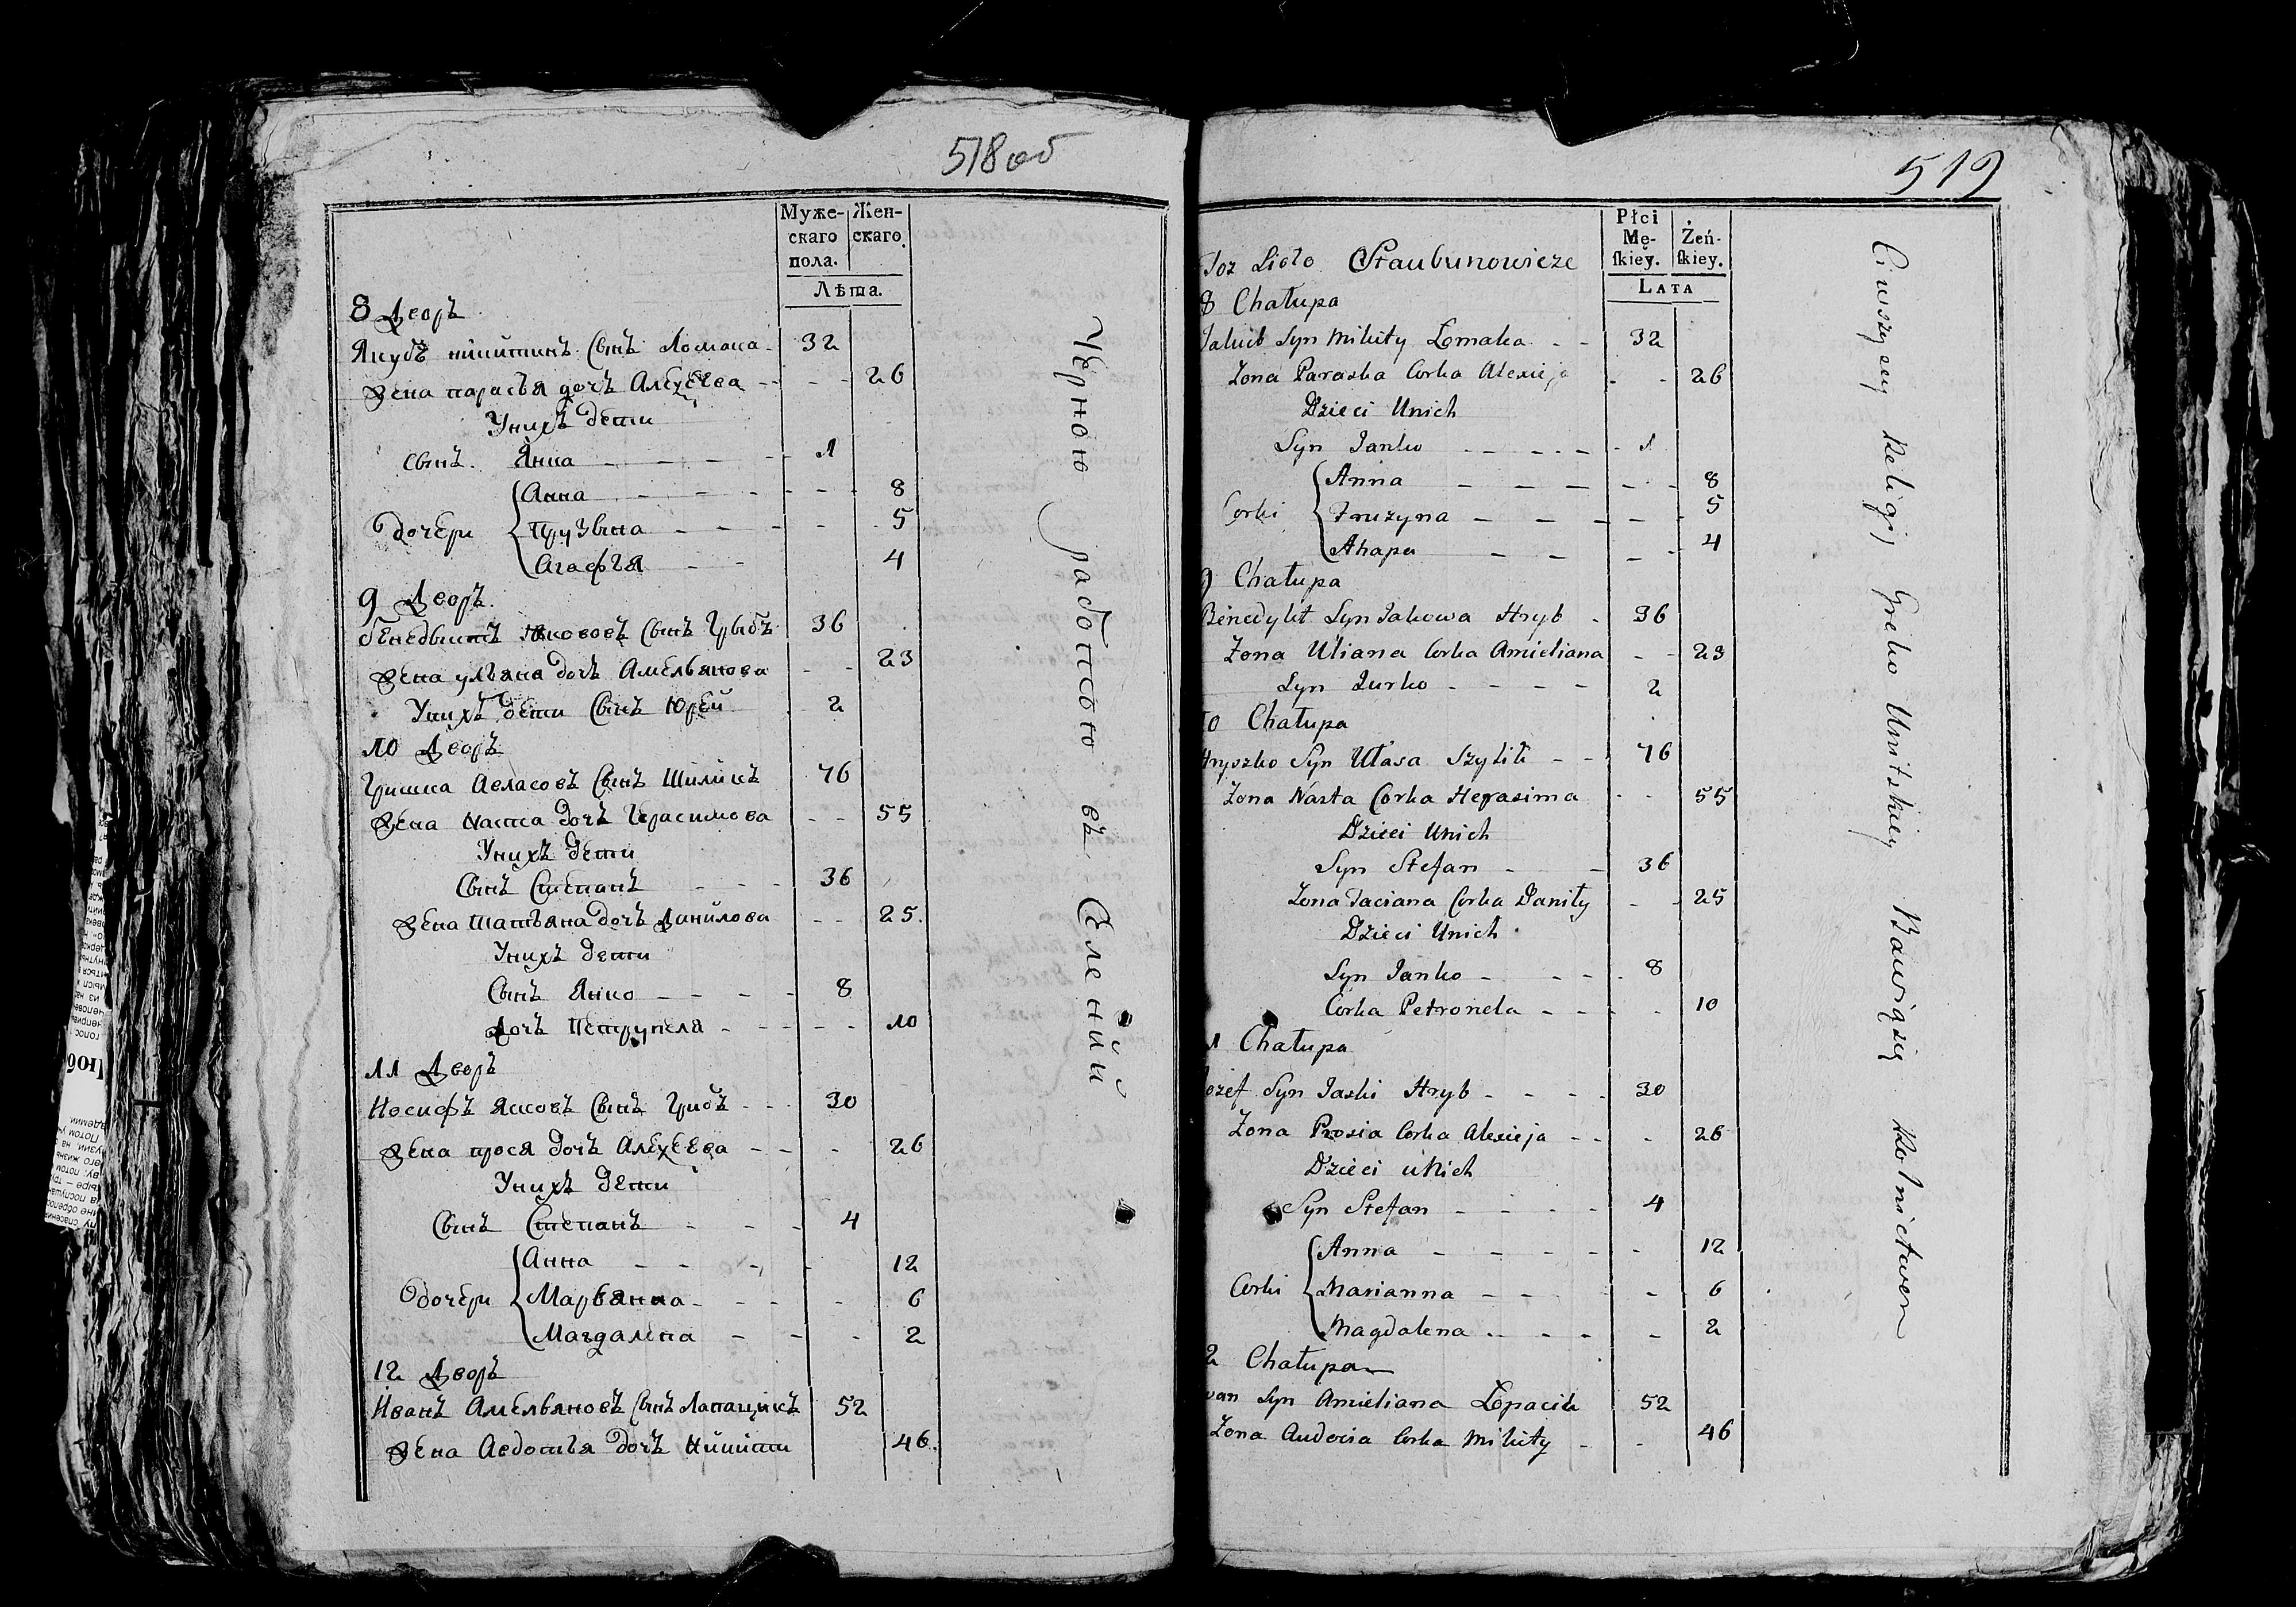 518 об
Муже-
скаго
пола.
Жен-
скаго.
Лѣта.
8 Дворъ
Якубъ никитинъ Сынъ Ломака 32
Жена парасья дочъ Алексеева 26
Унихъ дети
Сынъ Янка 1
дочери
Анна 8
Прузына 5
Агафѣя 4
9 Дворъ
бенедыктъ Якововъ Сынъ Грыбъ 36
Жена ульяна дочъ Амельянова 23
Унихъ дети Сынъ Юрей 2
10 Дворъ
Гришка Авласовъ Сынъ Шиликъ 76
Жена Наста дочъ Герасимова 55
Унихъ дети
Сынъ Степанъ 36
Жена Татьяна дочъ Данилова 25
Унихъ дети
Сынъ Янко 8
Дочъ Петрунеля 10
11 Дворъ
Иосифъ Ясковъ Сынъ Грибъ 30
Жена прося дочъ Алексеева 26
Унихъ дети
Сынъ Степанъ 4
дочери
Анна 12
Марьянна 6
Магдалена 2
12 Дворъ
Иванъ Амельяновъ Сынъ Лапацикъ 52
Жена Авдотья дочъ Никиты 46
Чёрною работою въ Селений
519
Toż Sioło Staubunowicze
Płci
Mę-
skiey.
Żeń-
skiey.
LATA
8 Chałupa
Jakub Syn Mikity Łomaka 32
Zona Paraska Corka Alexieja 26
Dzieci Unich
Syn Janko 1
Corki
Anna 8
Fruzyna 5
Ahapa 4
9 Chałupa
Benedykt Syn Jakowa Hryb 36
Zona Uliana Corka Amieliana 23
Syn Jurko 2
10 Chałupa
Hryszko Syn Ułasa Szylik 76
Zona Nasta Corka Herasima 55
Dzieci Unich
Syn Stefan 36
Zona Taciana Corka Daniły 25
Dzieci Unich
Syn Janko 8
Corka Petronela 10
1 Chałupa
ozef Syn Jaski Hryb 30
Zona Prosia Corka Alexieja 26
Dzieci unich
Syn Stefan 4
Corki
Anna 12
Marianna 6
Magdalena 2
2 Chałupa
wan Syn Amieliana Łopacik 52
Zona Audocia Corka Mikity 46
Religij Greko Unitskiey Bawiąsię Rolnictwem